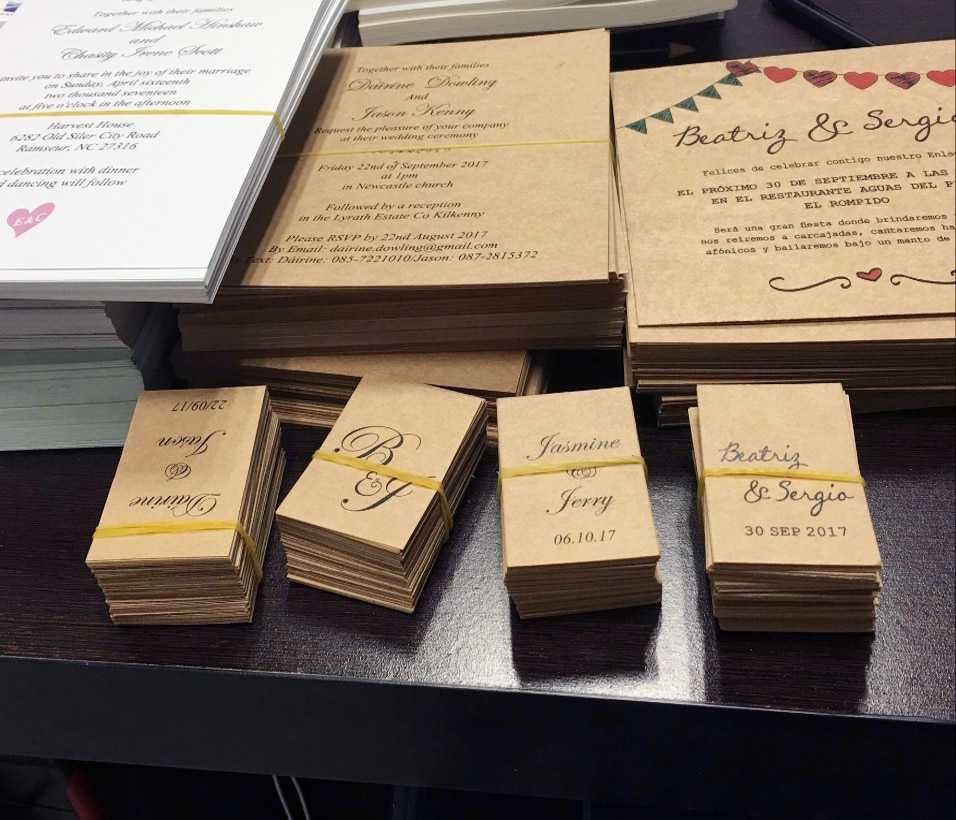 Together with their families
Edward Michael Hinshaw
and
Chasity Irene Scott
invite you to share in the joy of their marriage
on Sunday, April sixteenth
two thousand seventeen
at five o'clock in the afternoon
Harvest House
6282 Old Siler City Road
Ramseur, NC 27316
celebration with dinner
dancing will follow
E & C
Together with their families
Dairine Dowling
And
Jason Kenny
Request the pleasure of your company
at their wedding ceremony
Friday 22nd of September 2017
at 1pm
in Newcastle church
Followed by a reception
in the Lyrath Estate Co Kilkenny
Please RSVP by 22nd August 2017
By Email: dairine.dowling@gmail.com
Text: Dáirine: 085-7221010/Jason: 087-2815372
Beatriz & Sergio
Felices de celebrar contigo nuestro Enlac
EL PRÓXIMO 30 DE SEPTIEMBRE A LAS
EN EL RESTAURANTE AGUAS DEL
EL ROMPIDO
Será una gran fiesta donde brindaremos
nos reiremos a carcajadas, cantaremos
afónicos y bailaremos bajo un manto de
Dáirine
&
Jason
22/09/17
B
&
J
Jasmine
&
Jerry
06.10.17
Beatriz
& Sergio
30 SEP 2017